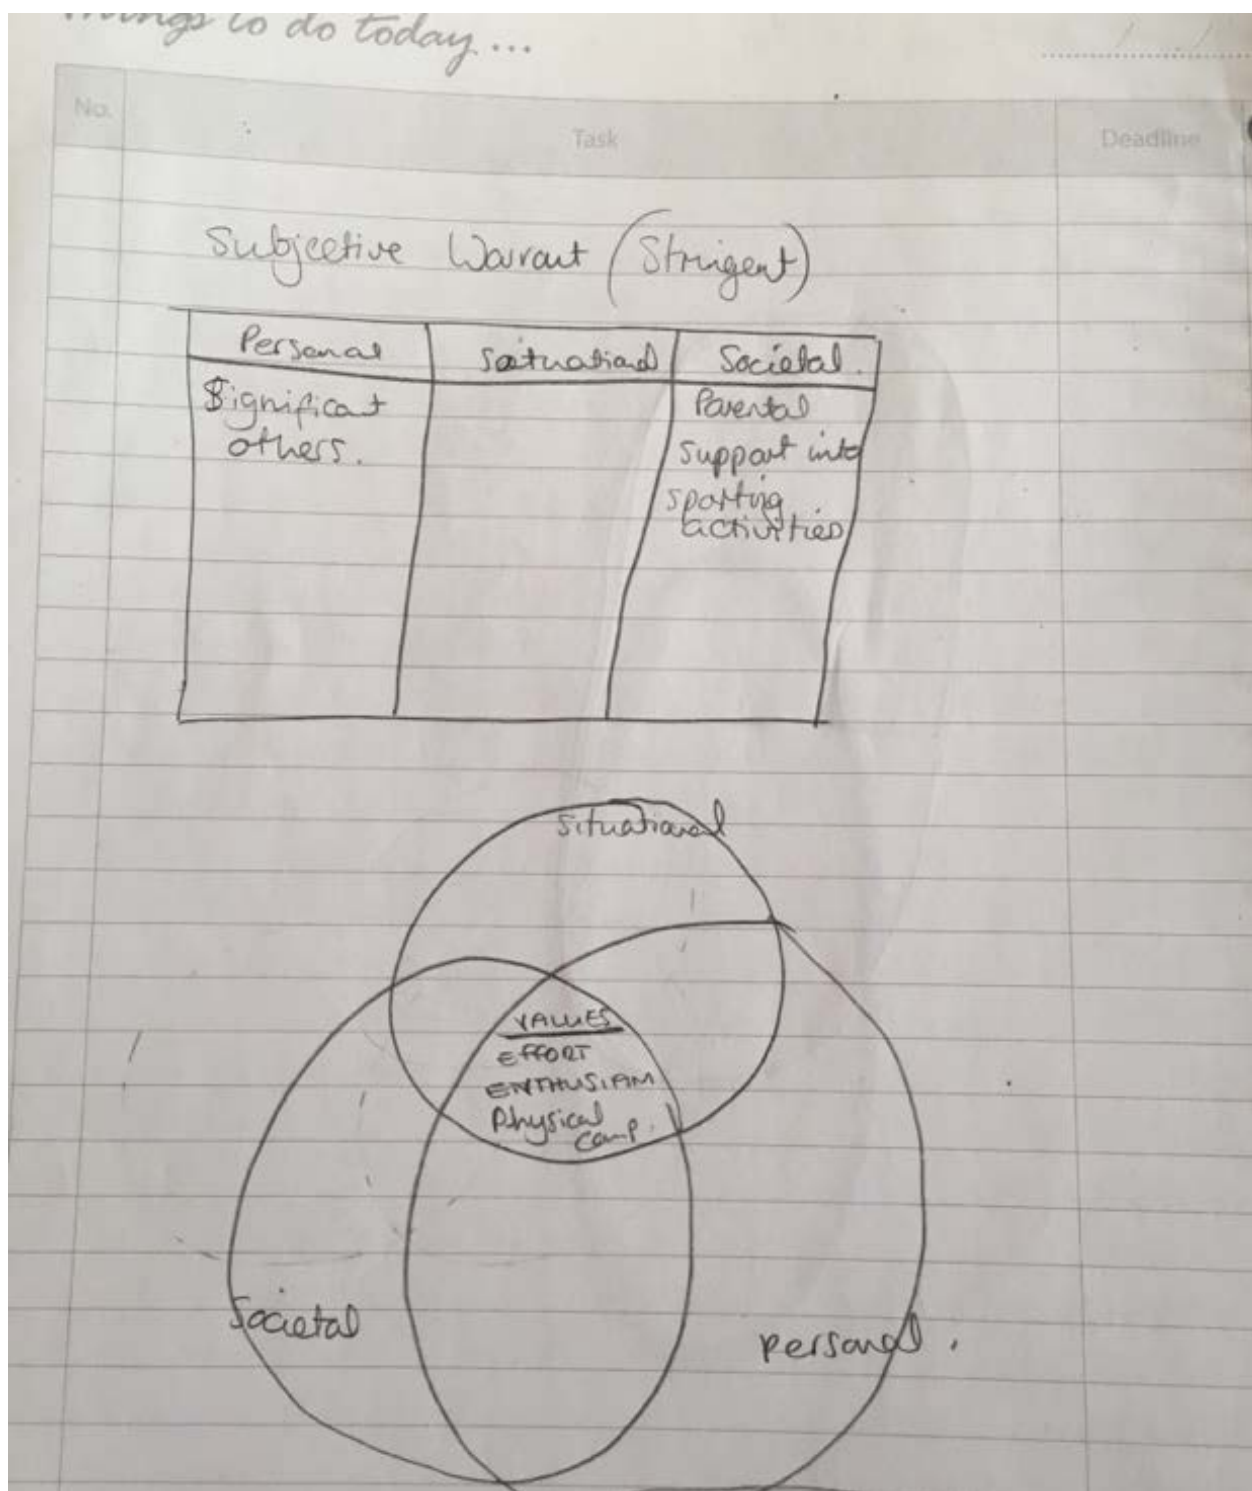 Things to do today...
No.
Task
Deadline
Subjective Warrant (Stringent)
Personal
Situational
Societal.
Significant
others.
Parental
support into
sporting
activities
Situational
VALUES
EFFORT
ENTHUSIAM
Physical
comp.
Societal
personal.